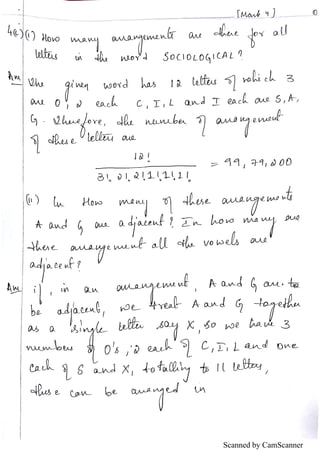 [Mark 4]
①
4(a)(i) How many arrangements are there for all
letters in the word SOCIOLOGICAL?
Ans The given word has 12 letters of which 3
are O, 2 each C, I, L and I each are S, A,
G. Therefore, the number of arrangement
of these letters are
12!
3! 2! 2! 1! 1! 2! = 99,79,200
(ii) In How many of these arrangements
A and G are adjacent? In how many are
there arrangement all the vowels are
adjacent?
Ans if, in an arrangement, A and G are to
be adjacent, we treat A and G together
as a single letter say X, so we have 3
numbers of O's, 2 each of C, I, L and one
each of S and X, totalling to 11 letters,
these can be arranged in
Scanned by CamScanner